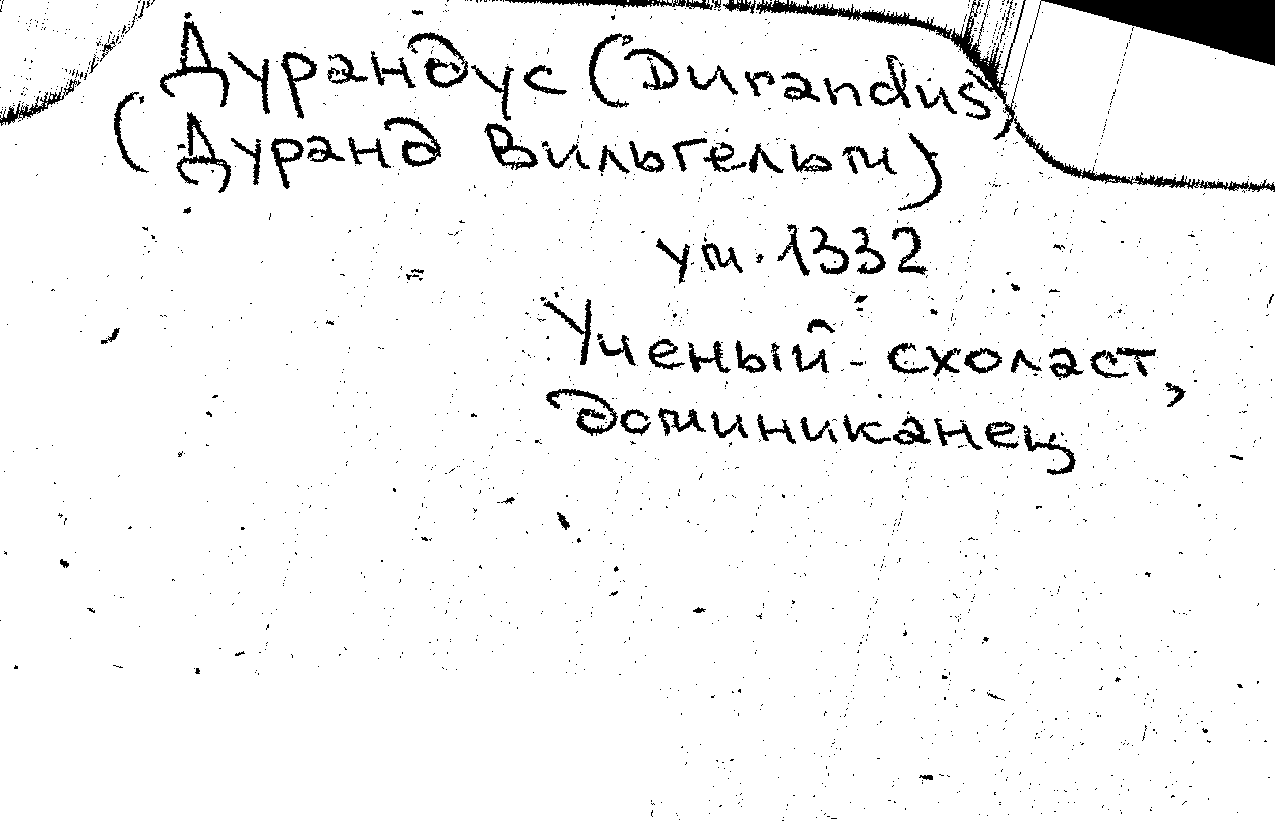 Дурандус (Durandus)
(Дуранд Вильгельм)
ум. 1332
Ученый-схоласт,
доминиканец